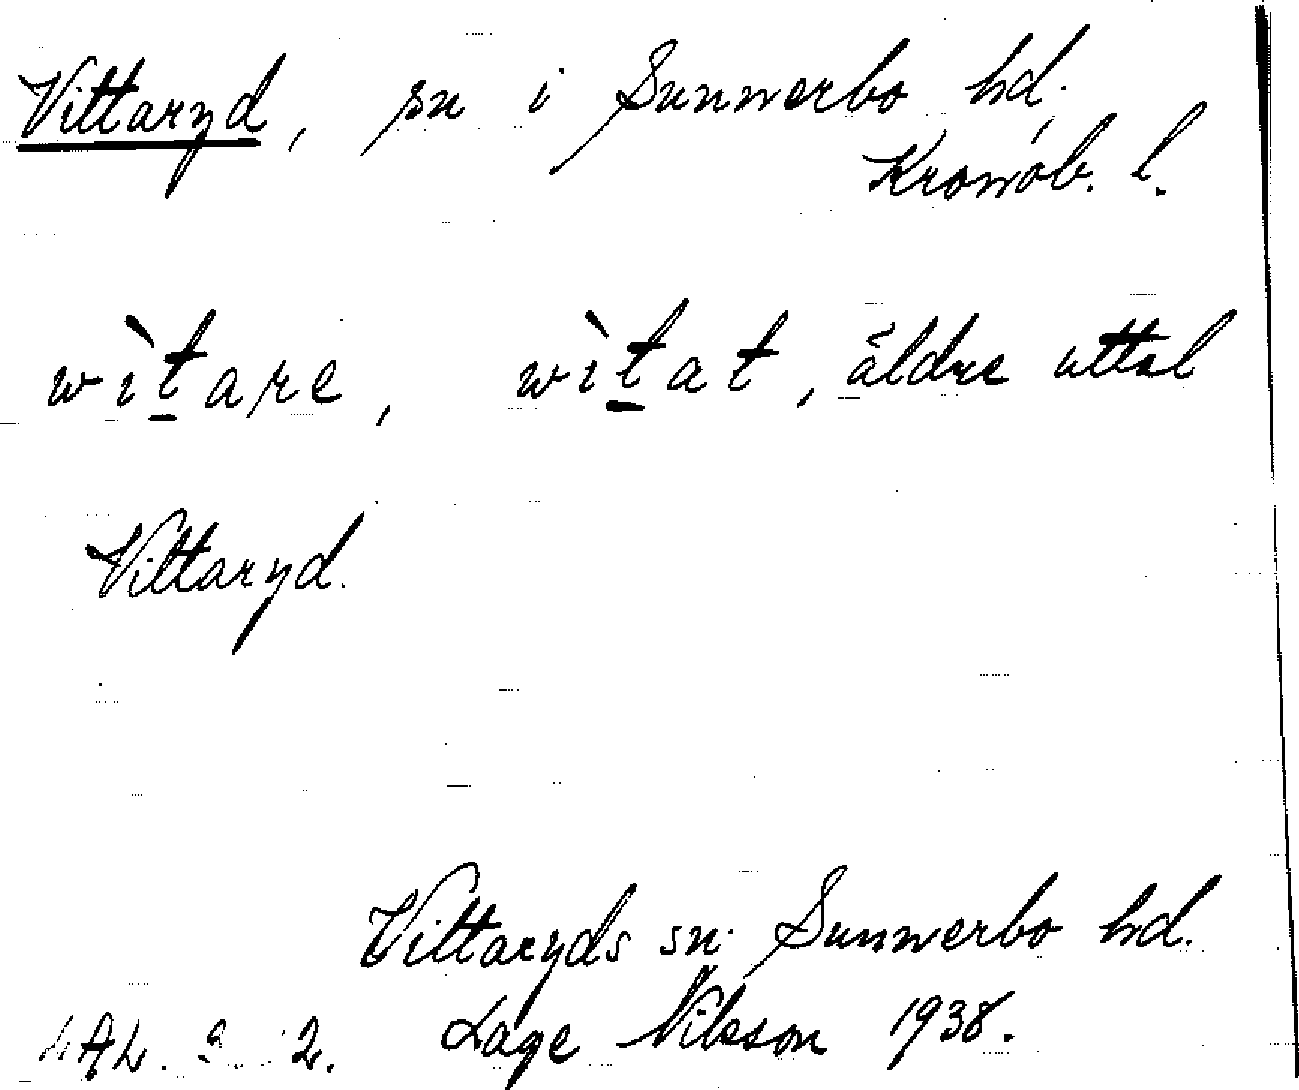 Vittaryd, sn i Sunnerbo hd,
Kronob. l.
wìt̲are, wìt̲at, äldre uttal
Vittaryd.
Vittaryds sn. Sunnerbo hd.
Lage Nilsson 1938.